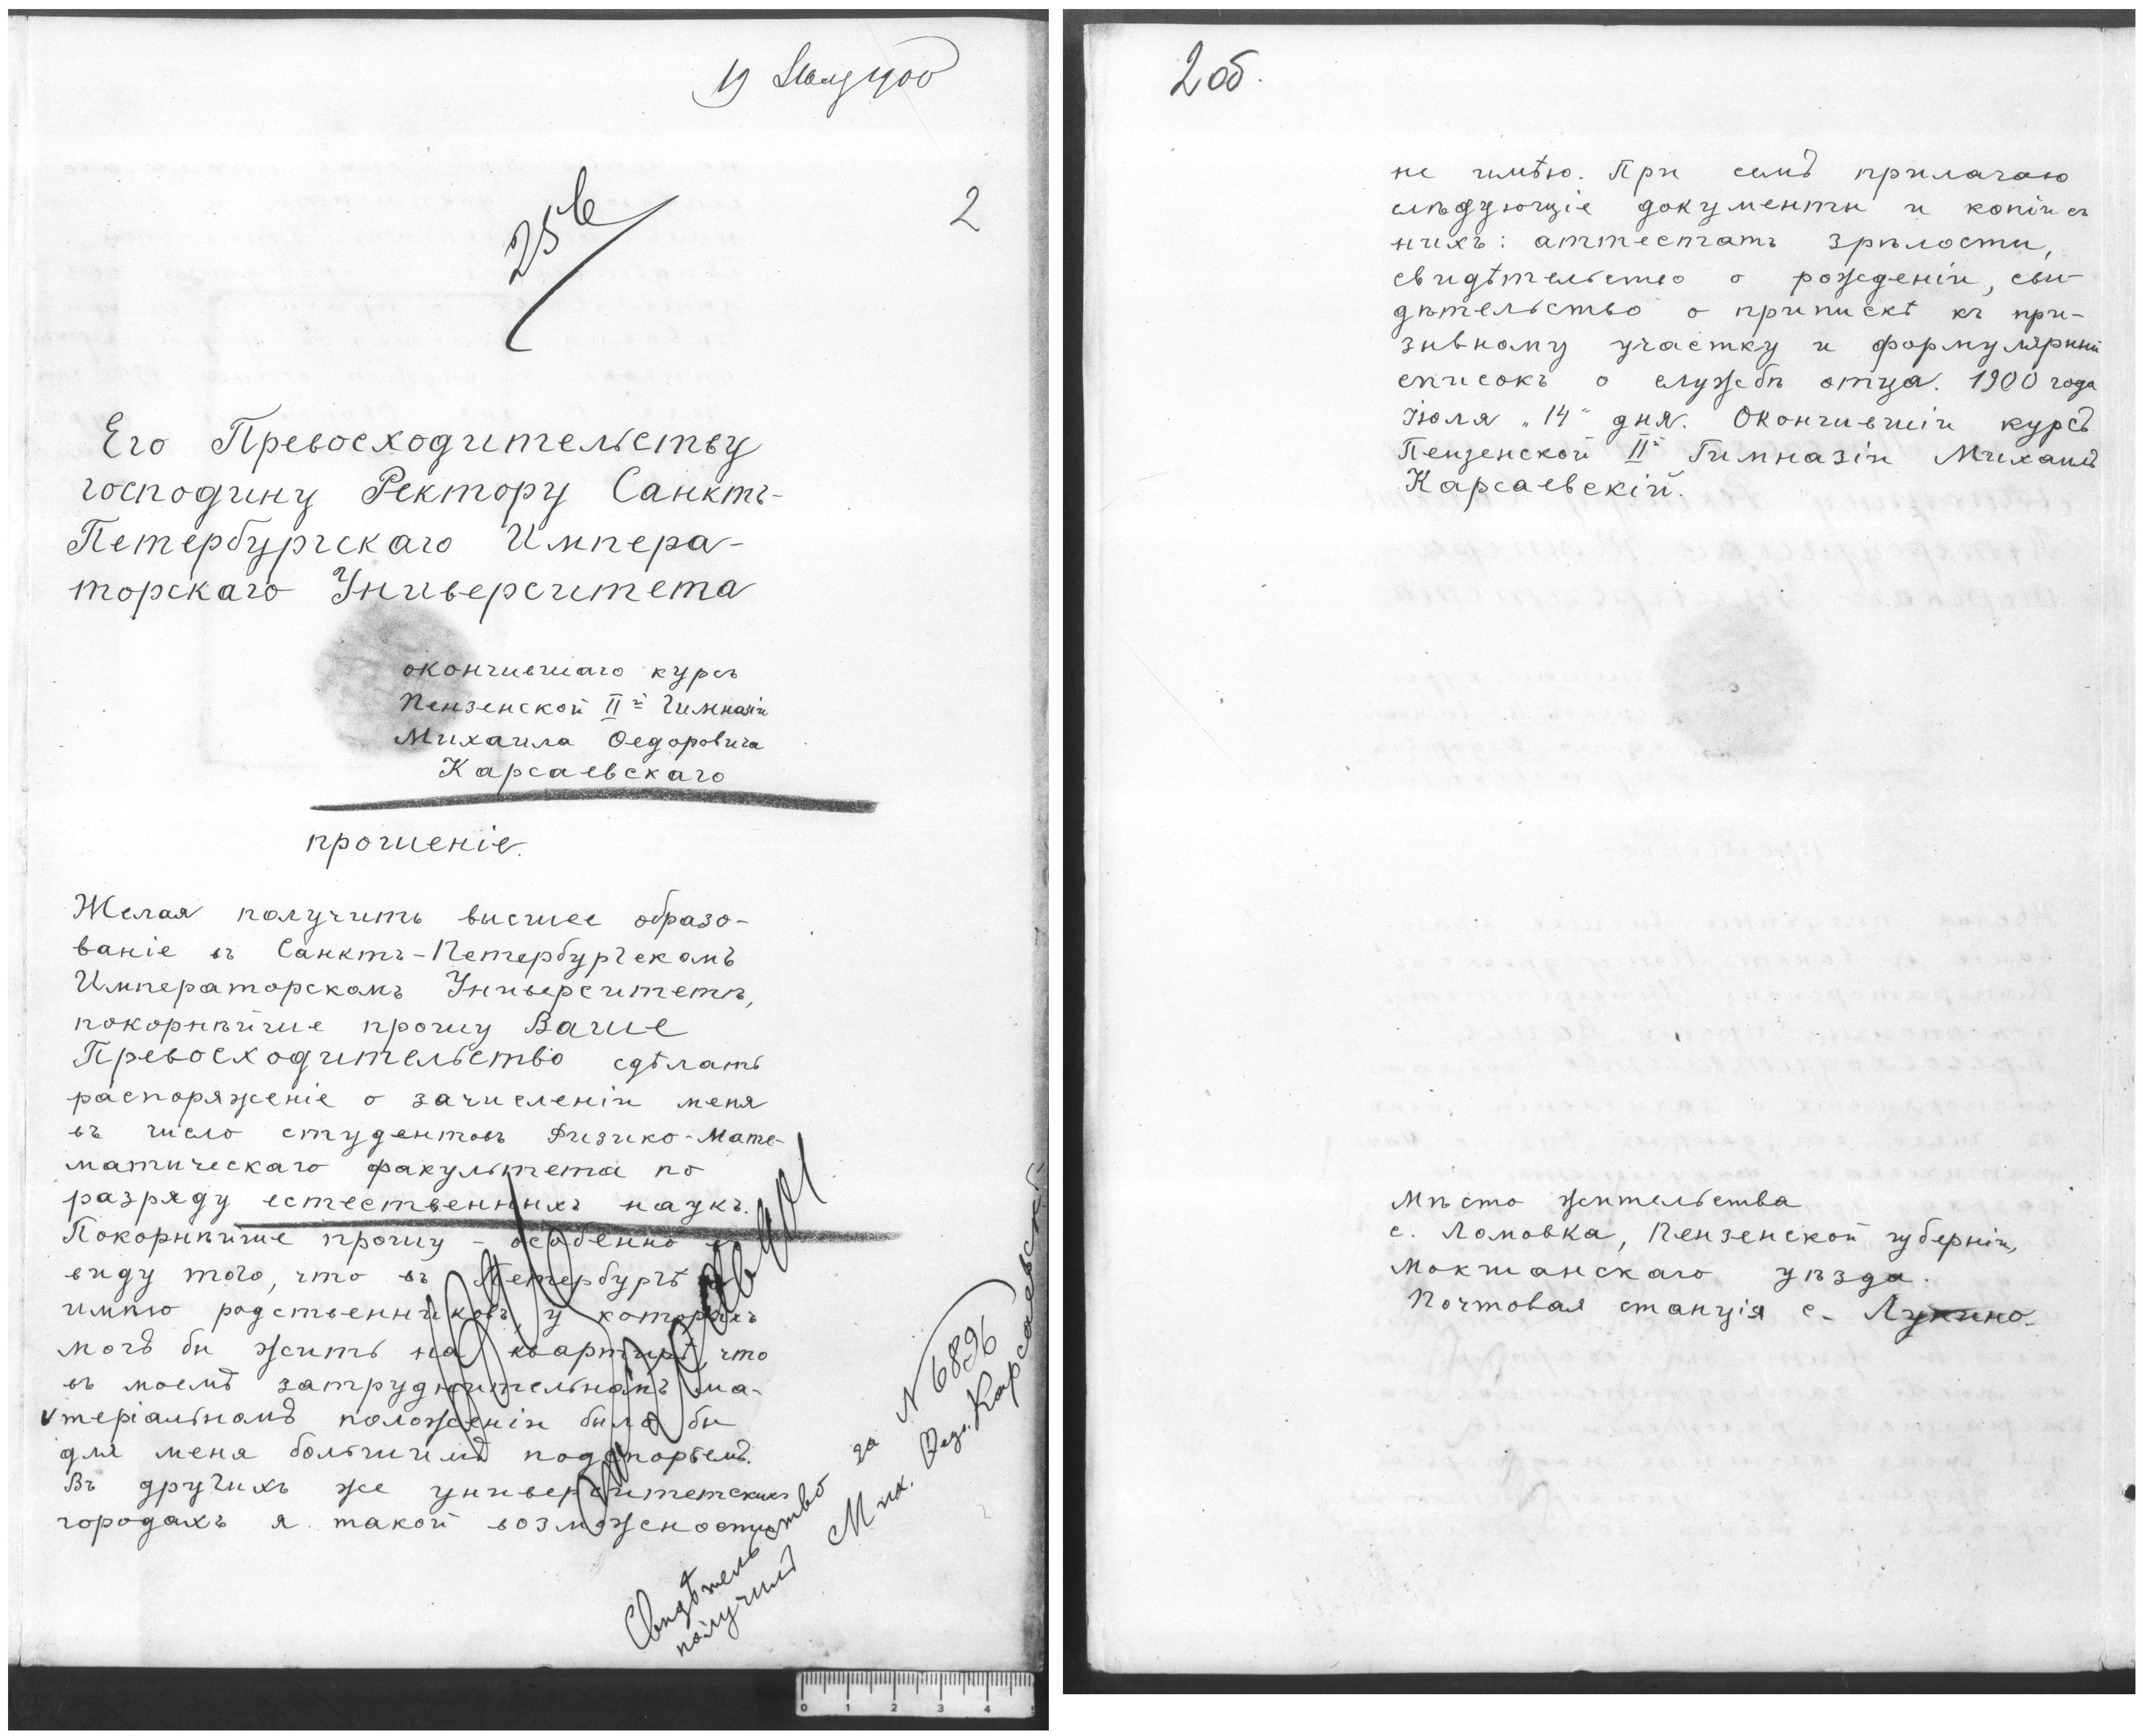 19 Іюля 1900
2
25 в
Его Превосходительству
господину Ректору Санктъ-
Петербургскаго Импера-
торскаго Университета
окончившаго курсъ
Пензенской II-й Гимназіи
Михаила Ѳедоровича
Карсаевскаго
прошеніе.
Желая получить высшее образо-
ваніе въ Санктъ-Петербургскомъ
Императорскомъ Университетѣ,
покорнѣйше прошу Ваше
Превосходительство сдѣлать
распоряженіе о зачисленіи меня
въ число студентовъ Физико-Мате-
матическаго факультета по
разряду естественныхъ наукъ.
Покорнѣйше прошу - особенно въ
виду того, что въ Петербургѣ я
имѣю родственниковъ, у которыхъ
могъ бы жить на квартирѣ, что
въ моемъ затруднительномъ ма-
теріальномъ положеніи было бы
для меня большимъ подспорьемъ.
Въ другихъ же университетскихъ
городахъ я такой возможности
Свидѣтельство за N 6896
получилъ Мих. Ѳед. Карсаевскій
2 об.
не имѣю. При семъ прилагаю
слѣдующіе документы и копіи съ
нихъ: аттестатъ зрѣлости,
свидѣтельство о рожденіи, сви-
дѣтельство о припискѣ къ при-
зывному участку и формулярный
списокъ о службѣ отца. 1900 года
Іюля „14" дня. Окончившій курсъ
Пензенской II-й Гимназіи Михаилъ
Карсаевскій.
Мѣсто жительства
с. Ломовка, Пензенской губерніи,
Мокшанскаго уѣзда.
Почтовая станція с. Лукино.